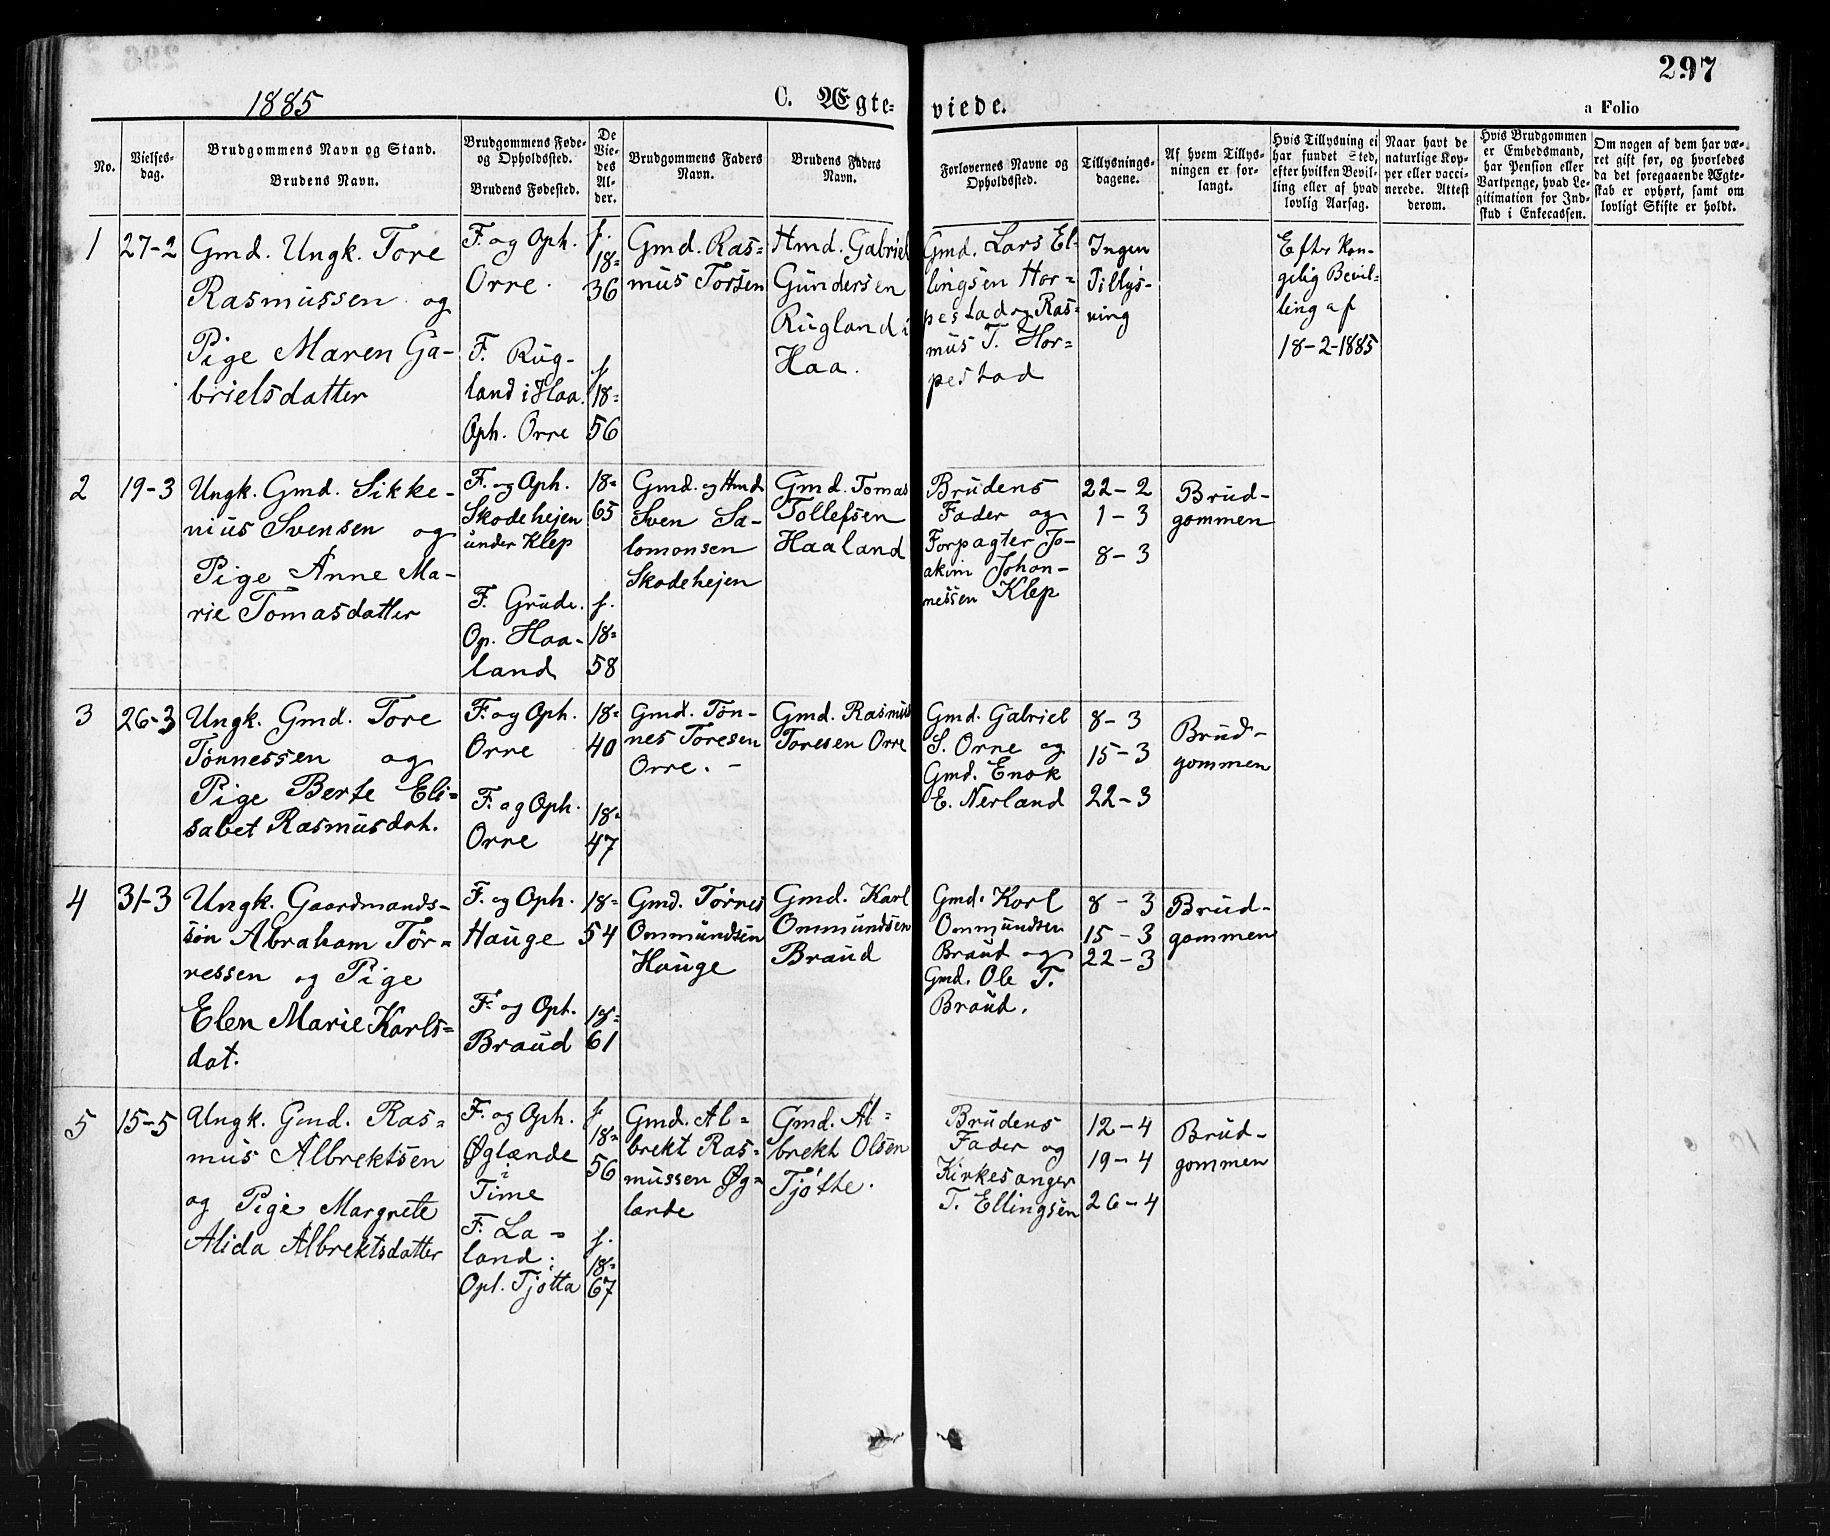 297
1885
C. Ægte-
viede.
a Folio
No.
Vielses-
dag.
Brudgommens Navn og Stand.
Brudens Navn.
Brudgommens Føde-
og Opholdssted.
Brudens Fødested.
De
Vie-
des
Al-
der.
Brudgommens Faders
Navn.
Brudens Faders
Navn.
Forlovernes Navne og
Opholdssted.
Tillysnings-
dagene.
Af hvem Tillys-
ningen er for-
langt.
Hvis Tillysning ei
har fundet Sted,
efter hvilken Bevil-
ling eller af hvad
lovlig Aarsag.
Naar havt de
naturlige Kop-
per eller vacci-
nerede. Attest
derom.
Hvis Brudgommen
er Embedsmand,
har Pension eller
Vartpenge, hvad Le-
gitimation for Ind-
skud i Enkecassen.
Om nogen af dem har væ-
ret gift før, og hvorledes
da det foregaaende Ægte-
skab er ophørt, samt om
lovligt Skifte er holdt.
1
27-2
Gmd. Ungk. Tore
Rasmussen og
Pige Maren Ga-
brielsdatter
F. og Oph.
Orre.
F. Rug-
land i Haa.
Oph. Orre
f.
18=
36
f.
18=
56
Gmd. Ras=
mus Torsen
Hmd. Gabriel
Gundersen
Rugland i
Haa.
Gmd. Lars El-
lingsen Hor=
pestad og Ras=
mus T. Hor=
pestad
Ingen
Tillys-
ning
Efter Kon-
gilig Bevil-
ling af
18-2-1885
2
19-3
Ungk. Gmd. Sikke-
nius Svensen og
Pige Anne Ma-
rie Tomasdatter
F. og Oph.
Skodehejen
under Klep
F. Grude.
Op. Haa-
land
18=
65
f.
18=
58
Gmd. og Hmd.
Sven Sa-
lomonsen
Skodehejen
Gmd. Tomas
Tollefsen
Haaland
Brudens
Fader og
Forpagter Jo-
akim Johan-
nessen Klep
22-2
1-3
8-3
Brud-
gommen
3
26-3
Ungk. Gmd. Tore
Tønnessen og
Pige Berte Eli-
sabet Rasmusdat.
F. og Oph.
Orre
F. og Oph.
Orre
18=
40
18=
47
Gmd. Tøn-
nes Toresen
Orre. -
Gmd. Rasmus
Toresen Orre
Gmd. Gabriel
S. Orre og
Gmd. Enok
E. Nerland
8-3
15-3
22-3
Brud-
gommen
4
31-3
Ungk. Gaardmands-
søn Abraham Tør-
ressen og Pige
Elen Marie Karls=
dat.
F. og Oph.
Hauge
F. og Oph.
Braud
18=
54
18=
61
Gmd. Tørres
Ommundsen
Hauge
Gmd. Karl
Ommundsen
Braud
Gmd. Karl
Ommundsen
Braud og
Gmd. Ole T.
Braud.
8-3
15-3
22-3
Brud-
gommen
5
15-5
Ungk. Gmd. Ras=
mus Albrektsen
og Pige Margrete
Alida Albrektsdatter
F. og Oph.
Øglænde
i
Time
F. La-
land.
Opl. Tjøtta
f
18=
56
f.
18=
67
Gmd. Al=
brekt Ras=
mussen Øg=
lande
Gmd. Al=
brekt Olsen
Tjøtte.
Brudens
Fader og
Kirkesanger
T. Ellingsen
12-4
19-4
26-4
Brud-
gommen